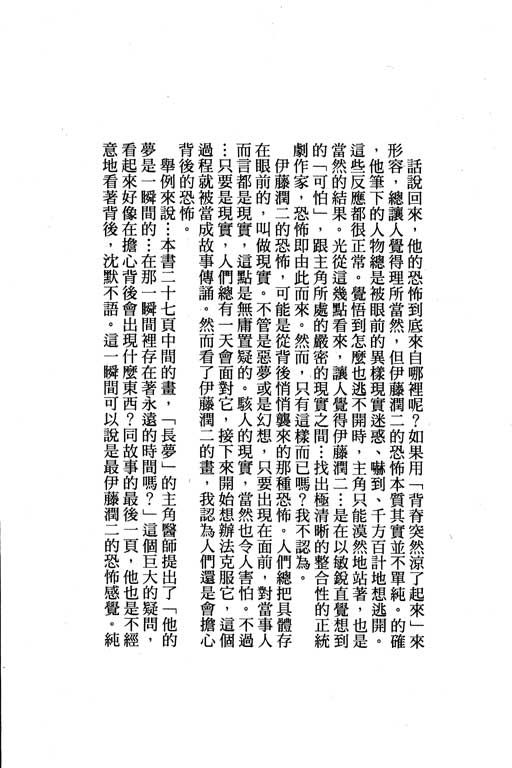 話說回來，他的恐怖到底來自哪裡呢？如果用「背脊突然涼了起來」來
形容，總讓人覺得理所當然，但伊藤潤二的恐怖本質其實並不單純。的確
，他筆下的人物總是被眼前的異樣現實迷惑、嚇到、千方百計地想逃開。
這些反應都很正常。覺悟到怎麼也逃不開時，主角只能漠然地站著，也是
當然的結果。光從這幾點看來，讓人覺得伊藤潤二…是在以敏銳直覺想到
的「可怕」，跟主角所處的嚴密的現實之間…找出極清晰的整合性的正統
劇作家，恐怖即由此而來。然而，只有這樣而已嗎？我不認為。
伊藤潤二的恐怖，可能是從背後悄悄襲來的那種恐怖。人們總把具體存
在眼前的，叫做現實。不管是惡夢或是幻想，只要出現在面前，對當事人
而言都是現實，這點是無庸置疑的。駭人的現實，當然也令人害怕。不過
…只要是現實，人們總有一天會面對它，接下來開始想辦法克服它，這個
過程就被當成故事傳誦。然而看了伊藤潤二的畫，我認為人們還是會擔心
背後的恐怖。
舉例來說…本書二十七頁中間的畫，「長夢」的主角醫師提出了「他的
夢是一瞬間的…在那一瞬間裡存在著永遠的時間嗎？」這個巨大的疑問，
看起來好像在擔心背後會出現什麼東西？同故事的最後一頁，他也是不經
意地看著背後，沈默不語。這一瞬間可以說是最伊藤潤二的恐怖感覺。純